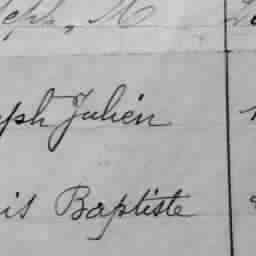 eph, M
ph Julien
is Baptiste